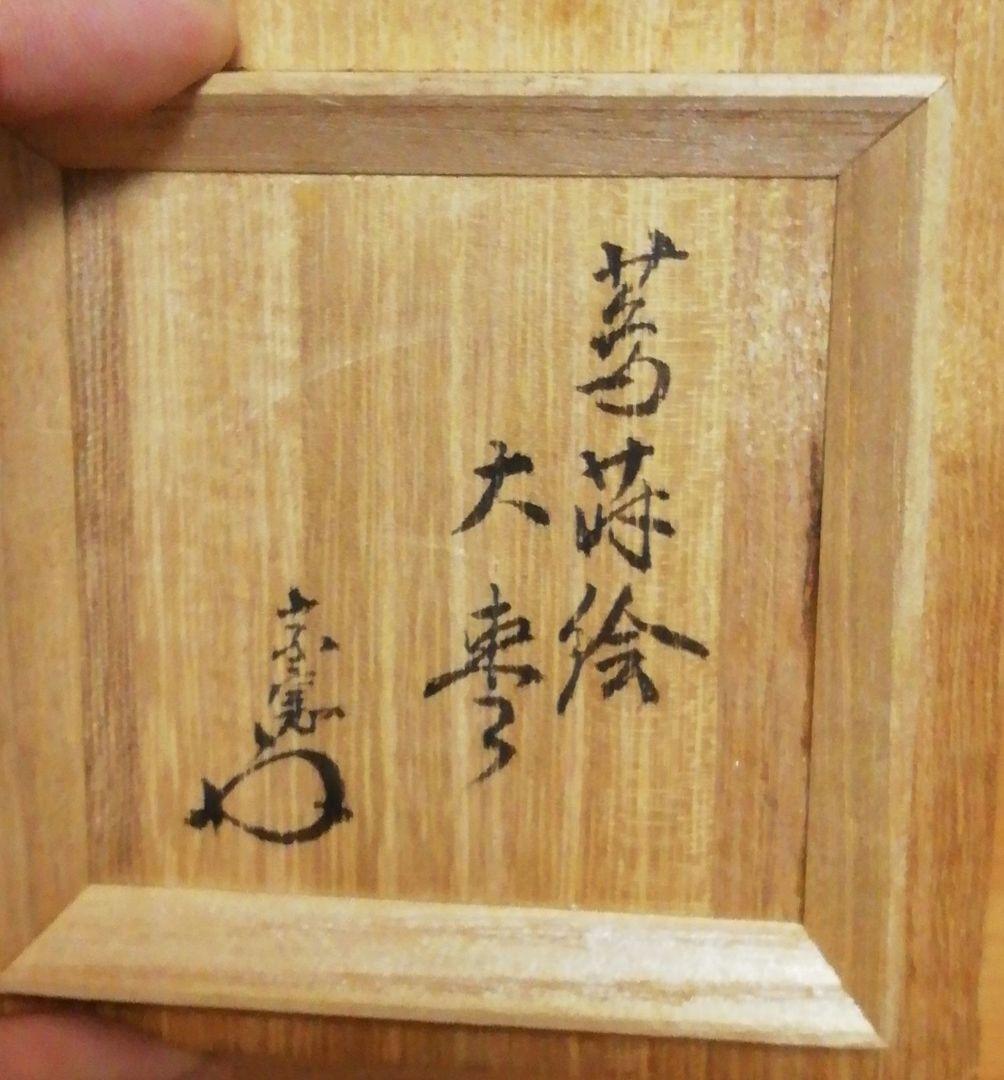 葛蒔絵
大棗